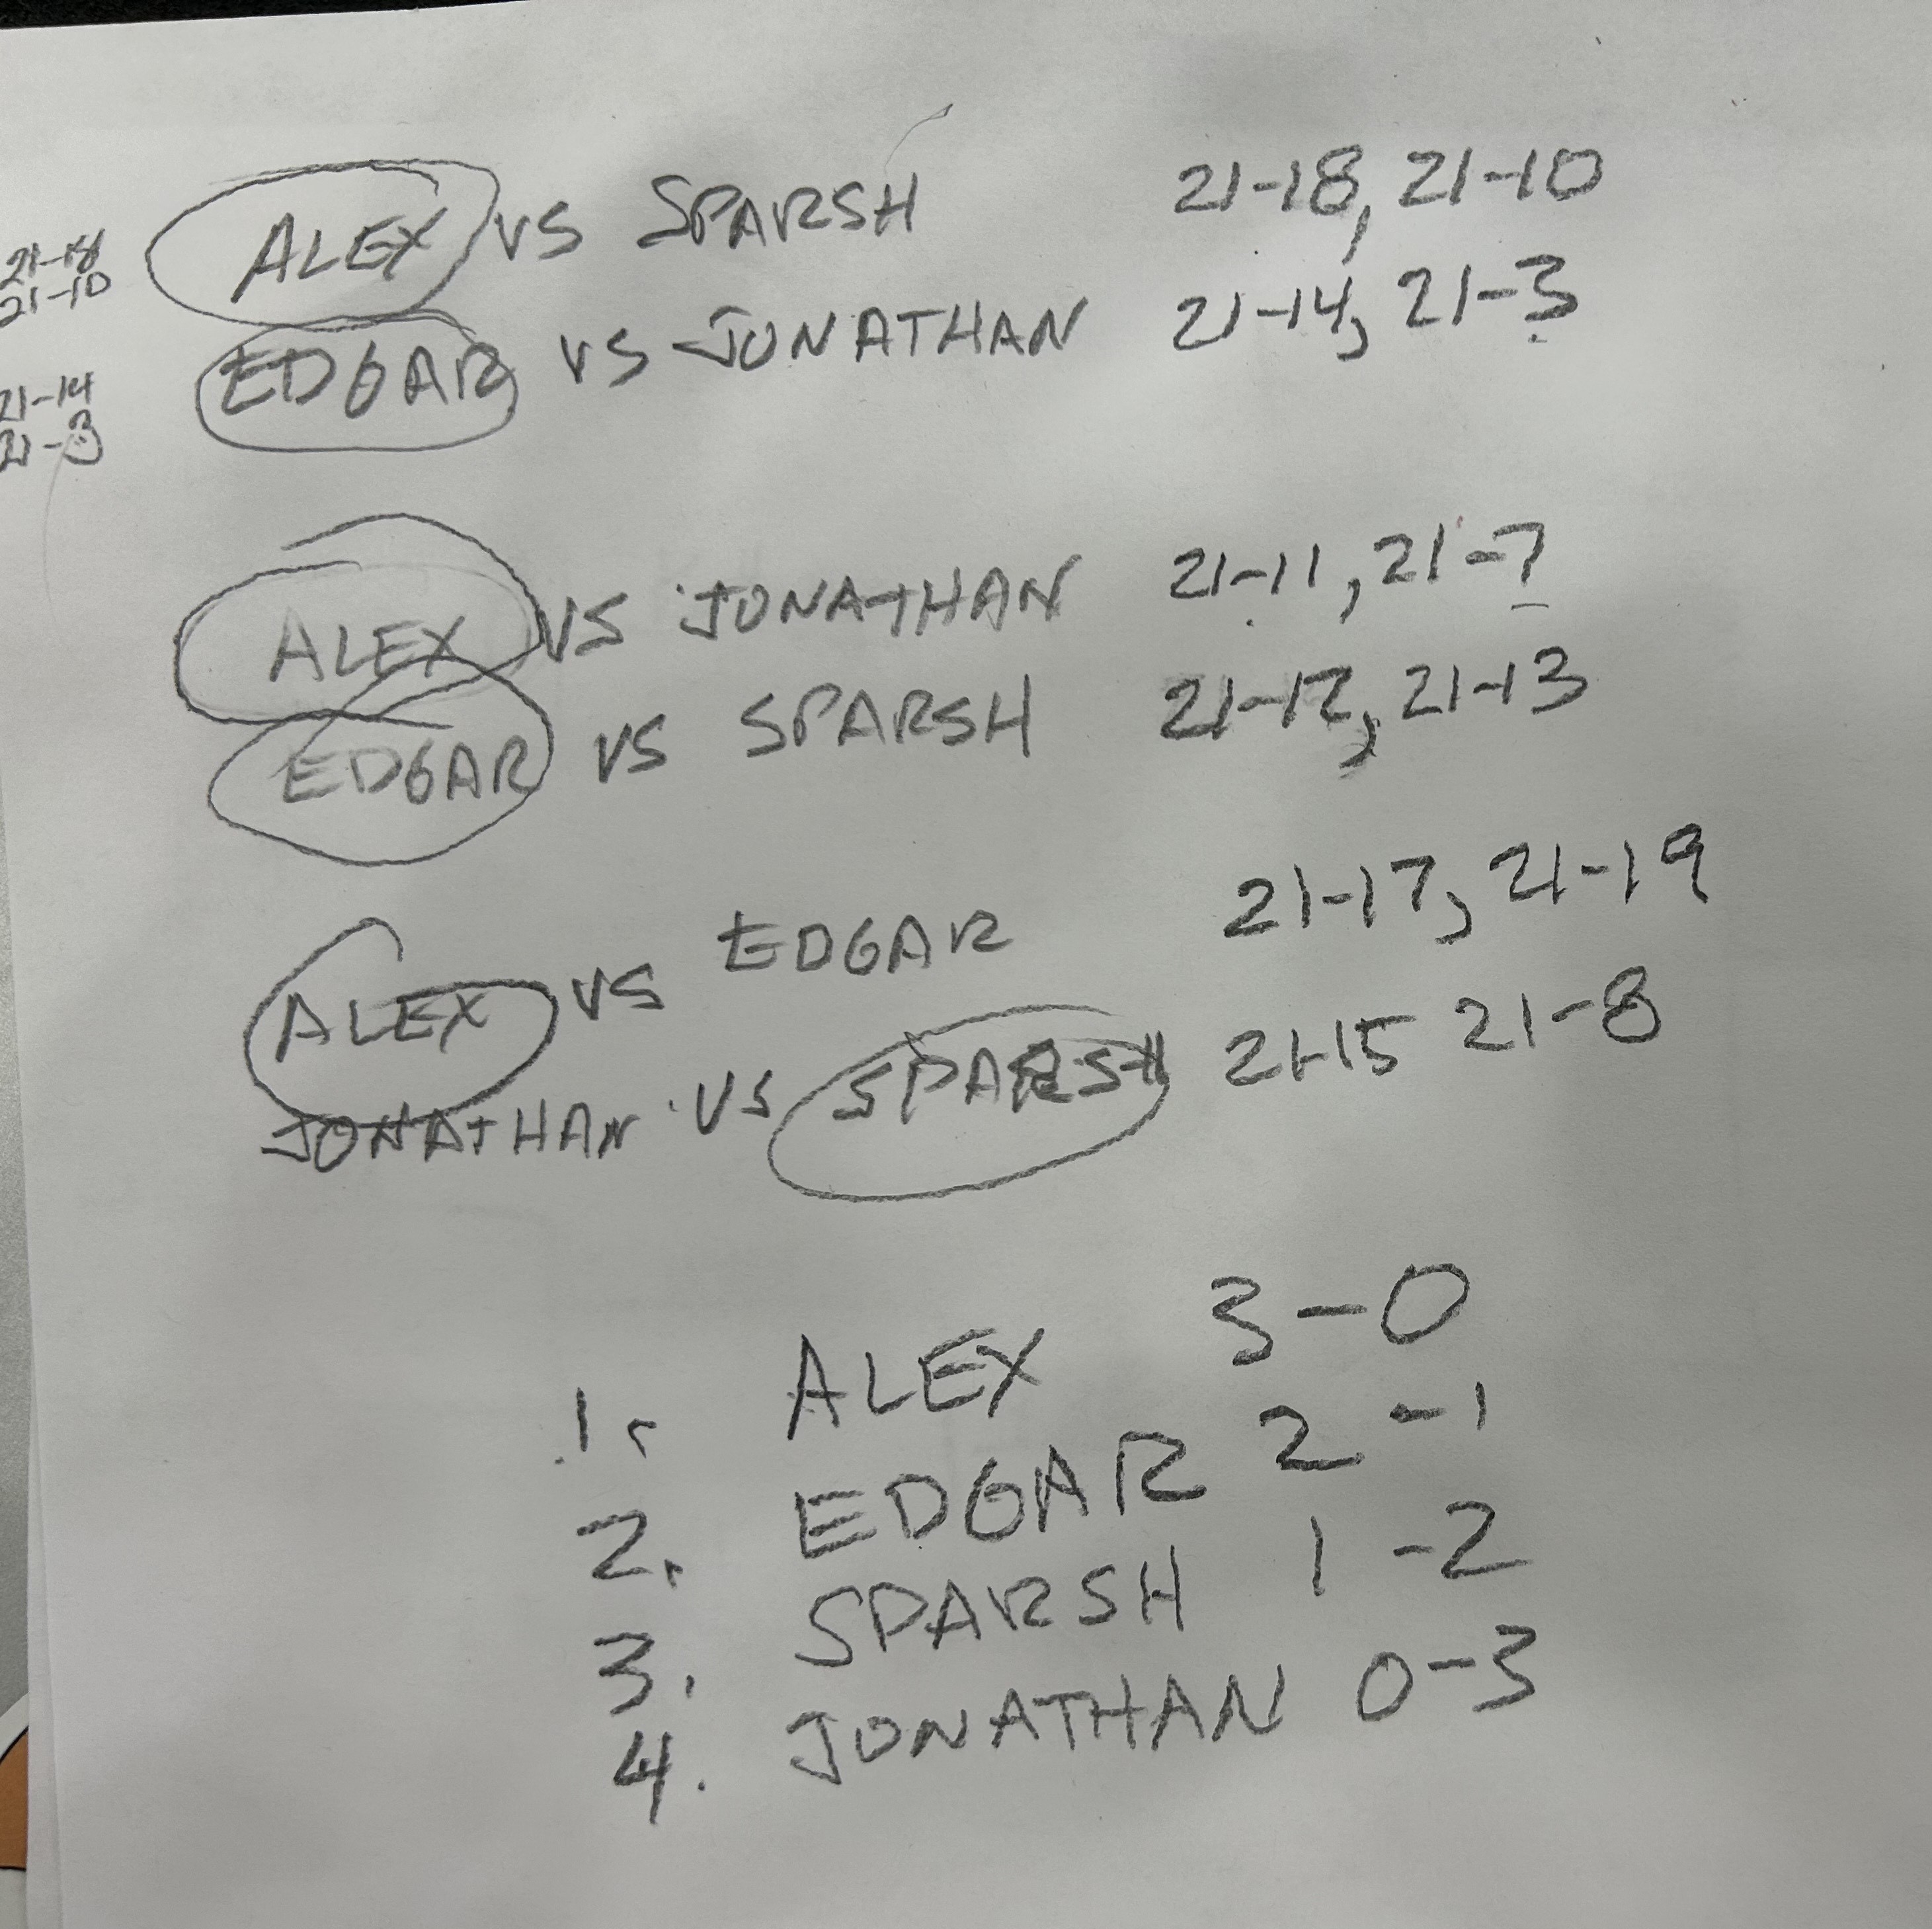 ALEX VS SPARSH 21-18, 21-10
21-18
21-10
EDGAR VS JONATHAN 21-14, 21-3
21-14
21-3
ALEX VS JONATHAN 21-11, 21-7
EDGAR VS SPARSH 21-12, 21-13
ALEX VS EDGAR 21-17, 21-19
JONATHAN VS SPARSH 21-15 21-8
1. ALEX 3-0
2. EDGAR 2-1
3. SPARSH 1-2
4. JONATHAN 0-3